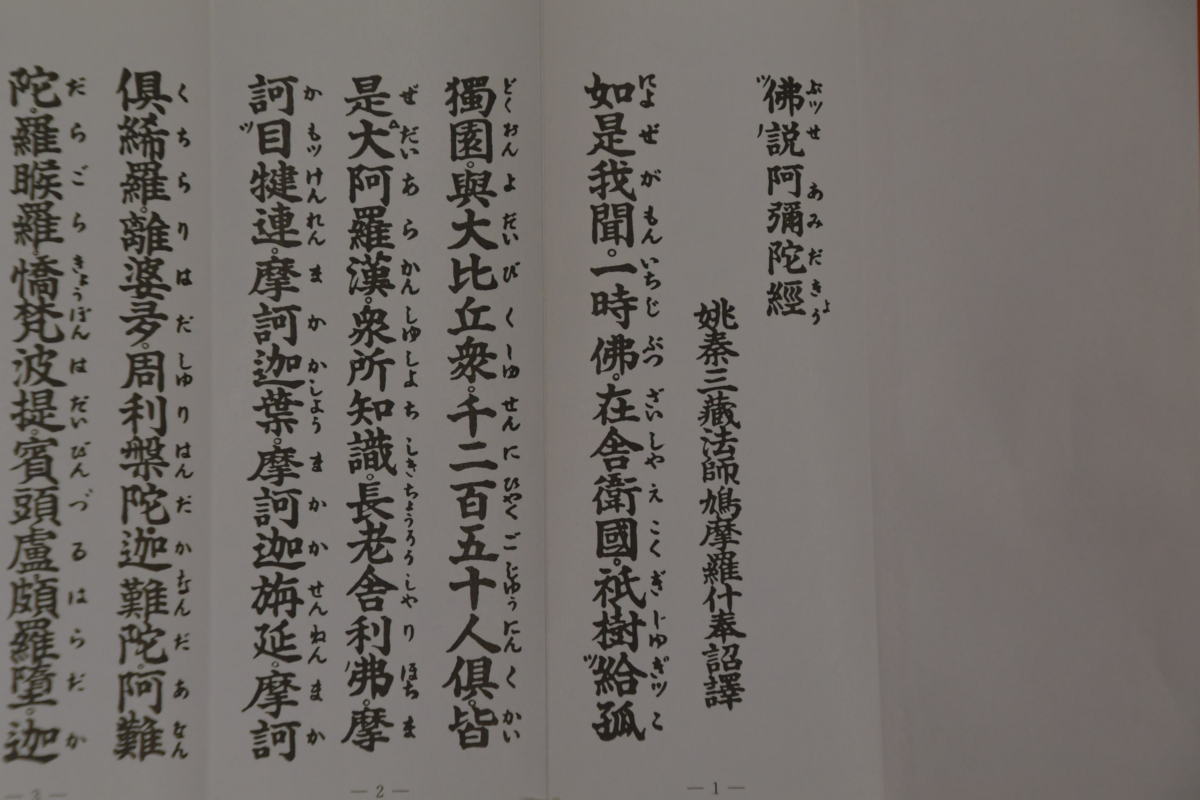 佛説阿彌陀經
姚秦三藏法師鳩摩羅什奉詔譯
如是我聞。一時佛。在舎衞國。祇樹給孤
獨園。與大比丘衆。千二百五十人倶。皆
是大阿羅漢。衆所知識。長老舎利弗。摩
訶目犍連。摩訶迦葉。摩訶迦旃延。摩訶
倶絺羅。離婆多。周利槃陀迦。難陀。阿難
陀。羅睺羅。憍梵波提。賓頭盧頗羅墮。迦
— 1 —
— 2 —
— 3 —